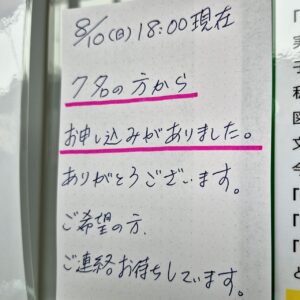 8/10(日)18:00現在
7名の方から
お申し込みがありました。
ありがとうございます。
ご希望の方、
ご連絡お待ちしています。